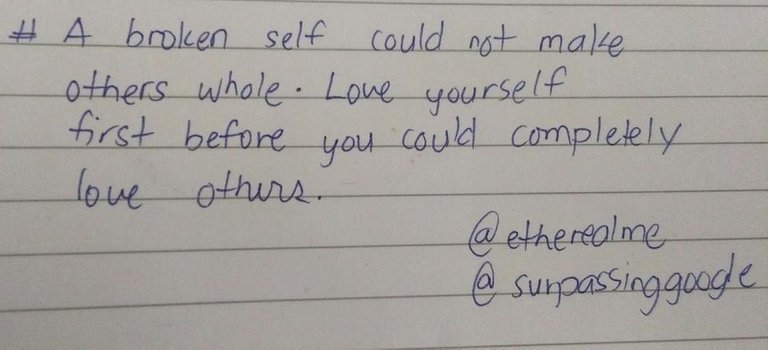 # A broken self could not make
others whole. Love yourself
first before you could completely
love others.
@etherealme
@surpassinggoogle